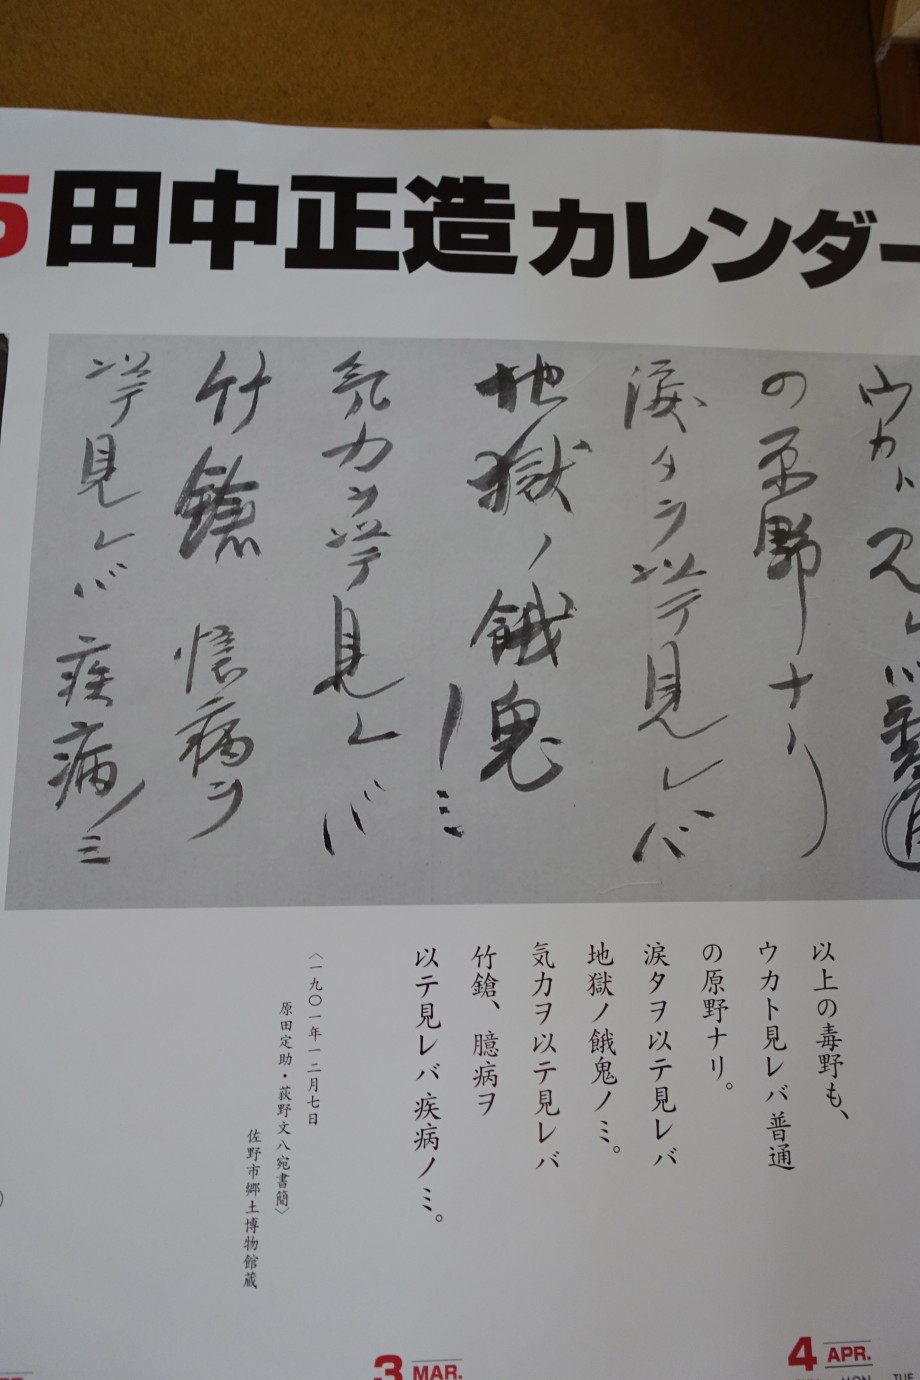 5 田中正造カレンダー
ウカト見レバ普通
の原野ナリ
涙タヲ以テ見レバ
地獄ノ餓鬼
ノミ
気力ヲ以テ見レバ
竹鎗 臆病ヲ
以テ見レバ疾病ノミ
以上の毒野も、
ウカト見レバ普通
の原野ナリ。
涙タヲ以テ見レバ
地獄ノ餓鬼ノミ。
気力ヲ以テ見レバ
竹鎗、臆病ヲ
以テ見レバ疾病ノミ。
〈一九〇一年一二月七日
原田定助・荻野文八宛書簡〉
佐野市郷土博物館蔵
3 MAR.
4 APR.